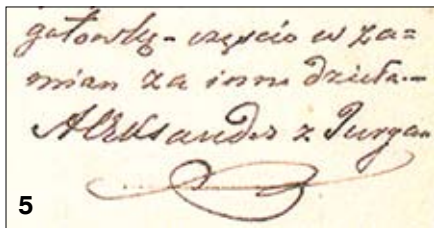 gotowkę - częścio w za=
mian za inne dzieła.—
Aleksander z Purga
5